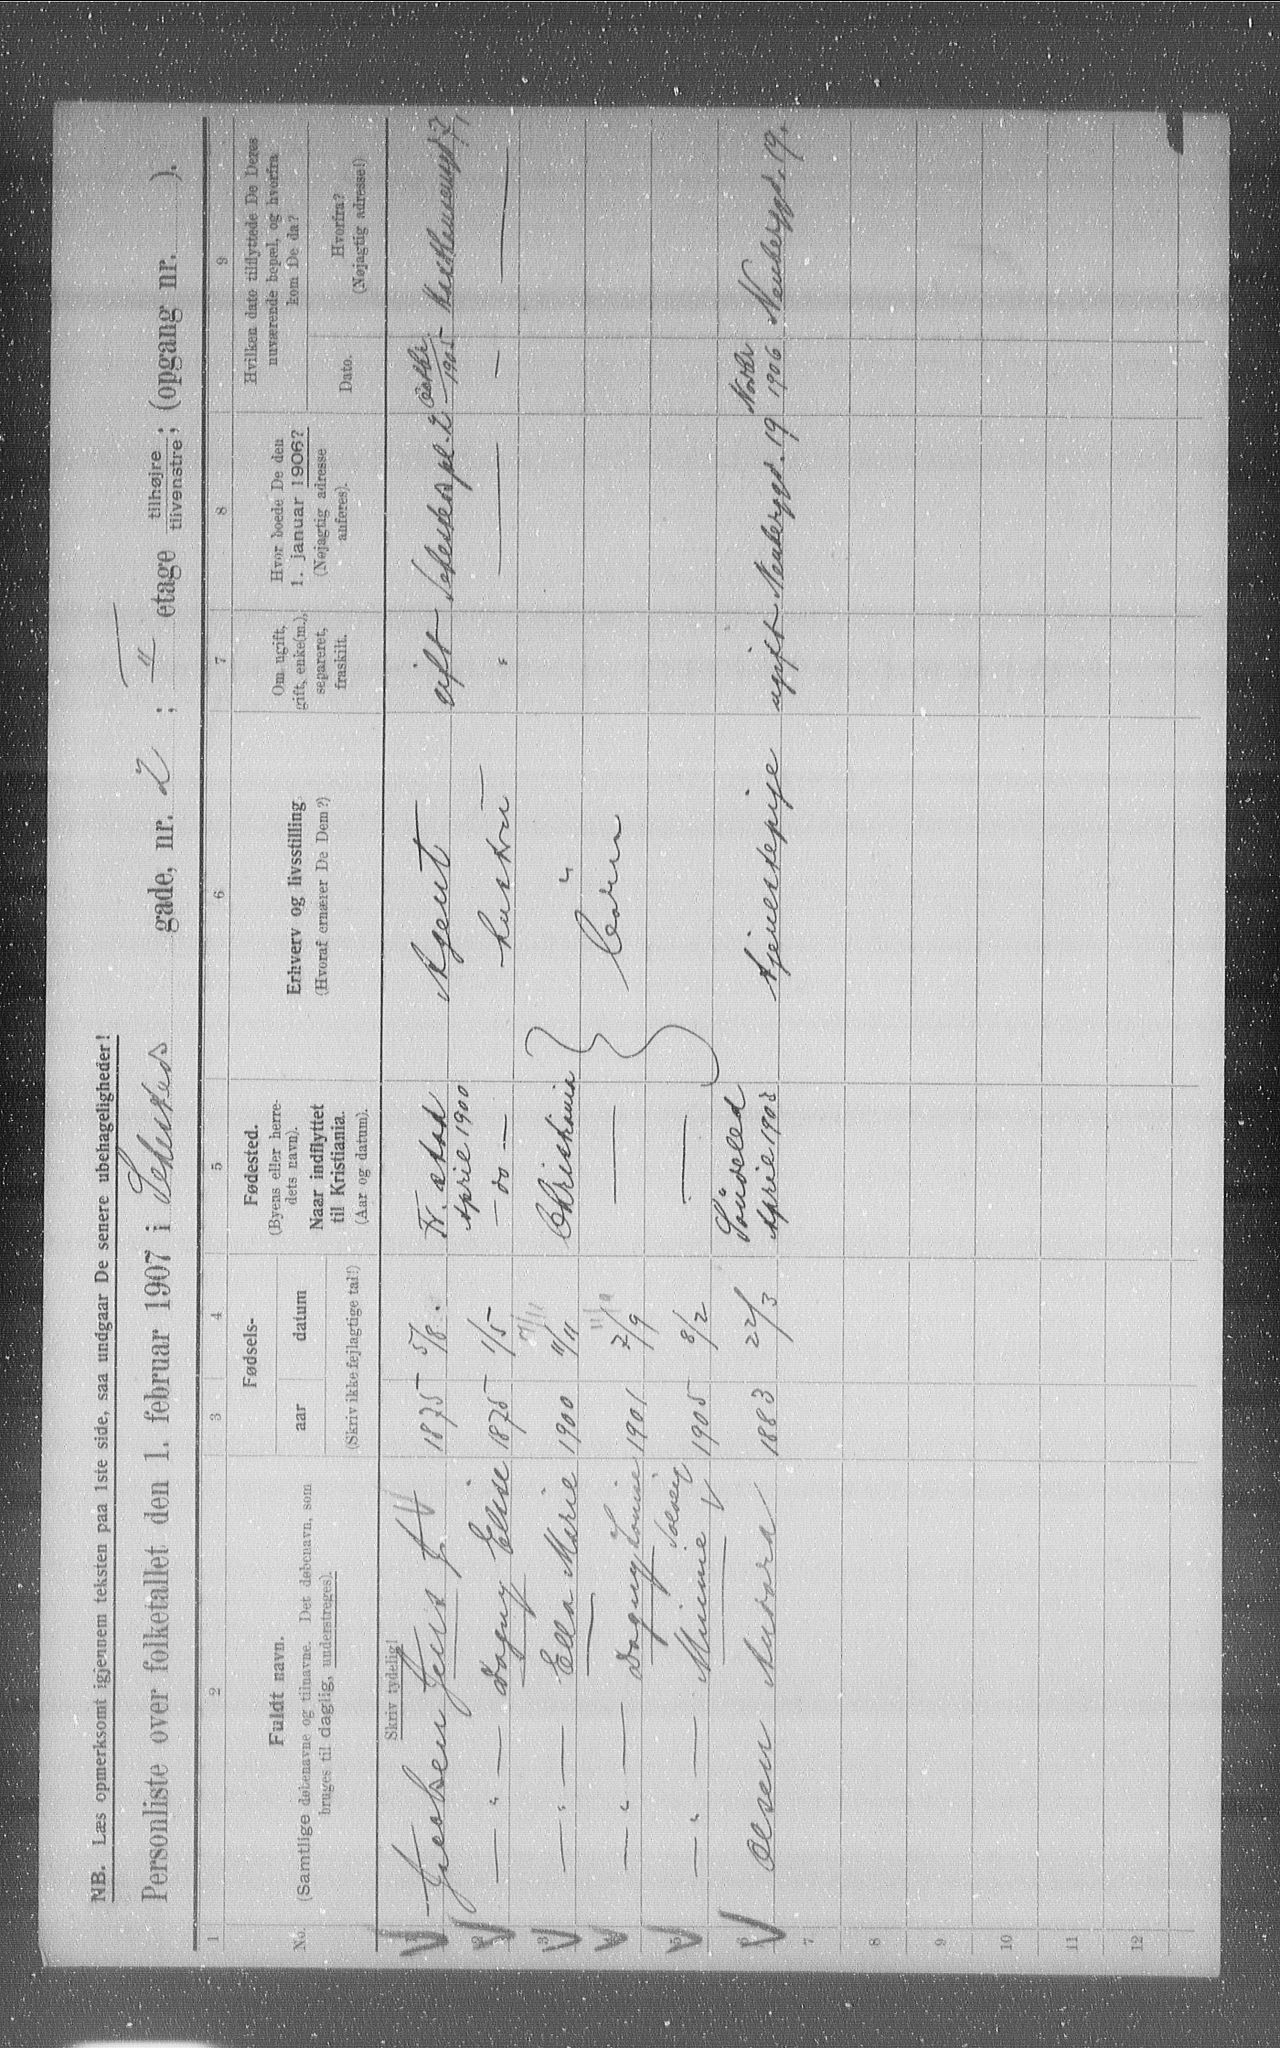 NB. Læs opmerksomt igjennem teksten paa 1ste side, saa undgaar De senere ubehageligheder!
Personliste over folketallet den 1. februar 1907 i Schultes gade, nr. 2 ; II etage tilhøjre tilvenstre ; (opgang nr. ).
1 2 3 4 5 6 7 8 9
No. Fuldt navn. (Samtlige døbenavne og tilnavne. Det døbenavn, som bruges til daglig, understreges).
Fødsels- aar datum
(Skriv ikke fejlagtige tal!)
Fødested. (Byens eller herredets navn). Naar indflyttet til Kristiania. (Aar og datum).
Erhverv og livsstilling (Hvoraf ernærer De Dem?)
Om ugift, gift, enke(m.), separeret, fraskilt.
Hvor boede De den 1. januar 1906? (Nøjagtig adresse anføres).
Hvilken dato tilflyttede De Deres nuværende bopæl, og hvorfra kom De da?
Dato. Hvorfra? (Nøjagtig adresse!)
Skriv tydelig!
1 Jacobsen Jens J 1875 5/8 Fr. stad April 1900 Agent gift pl. 2 1905 7,
2 — " — Dagny Elise 1875 1/5 — do — hustru " — — —
3 — " — Ella Marie 1900 11/11 Christiania "
4 — " — Dagny Louise 1901 7/9 — Børn
5 — " — Minnie Solveig 1905 8/2 —
6 Olsen Aurora 1883 22/3 April 1905 tjenestepige ugift Neubergsgd. 19 Novbr 1906 Neubergsgd. 19.
7
8
9
10
11
12